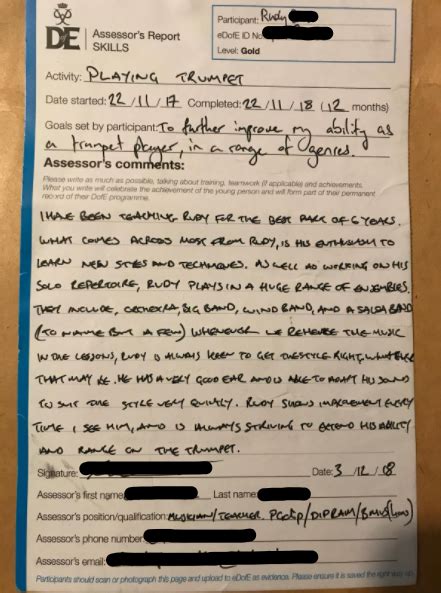 DofE
Assessor's Report
SKILLS
Participant: Rudy
eDofE ID No
Level: Gold
Activity: PLAYING TRUMPET
Date started: 22/11/17 Completed: 22/11/18 (12 months)
Goals set by participant: To further improve my ability as
a trumpet player, in a range of genres.
Assessor's comments:
Please write as much as possible, talking about training, teamwork (if applicable) and achievements.
What you write will celebrate the achievement of the young person and will form part of their permanent
record of their DofE programme.
I HAVE BEEN TEACHING RUDY FOR THE BEST PART OF 6 YEARS.
WHAT COMES ACROSS MOST FROM RUDY, IS HIS ENTHUSIASM TO
LEARN NEW STYLES AND TECHNIQUES. AS WELL AS WORKING ON HIS
SOLO REPERTOIRE, RUDY PLAYS IN A HUGE RANGE OF ENSEMBLES.
THEY INCLUDE, ORCHESTRA, BIG BAND, WIND BAND, AND A SALSA BAND
(TO NAME BUT A FEW) WHENEVER WE REHEARSE THE MUSIC
IN THE LESSONS, RUDY IS ALWAYS KEEN TO GET THE STYLE RIGHT, WHATEVER
THAT MAY BE. HE HAS A VERY GOOD EAR AND IS ABLE TO ADAPT HIS SOUND
TO SUIT THE STYLE VERY QUICKLY. RUDY SHOWS IMPROVEMENT EVERY
TIME I SEE HIM, AND IS ALWAYS STRIVING TO EXTEND HIS ABILITY
AND RANGE ON THE TRUMPET.
Signature: Date: 3/12/18
Assessor's first name: Last name:
Assessor's position/qualification: MUSICIAN/TEACHER. /DIPRAM/BMUS(Hons)
Assessor's phone number:
Assessor's email:
Participants should scan or photograph this page and upload to eDofE as evidence. Please ensure it is saved the right way up.